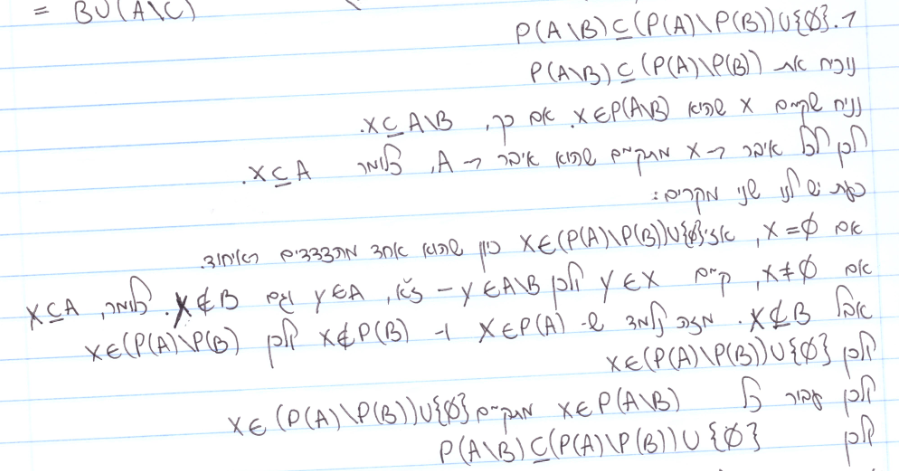 = B∪(A\C)
1. P(A\B)⊆(P(A)\P(B))∪{∅}
נוכיח את P(A\B)⊆(P(A)\P(B))
נניח שקיים X שהוא X∈P(A\B). אם כך, X⊆A\B.
לכן לכל איבר ב-X מתקיים שהוא איבר ב-A, כלומר X⊆A.
כעת יש לנו שני מקרים:
אם X=∅, אז X∈(P(A)\P(B))∪{∅} כיון שהוא אחד מהצדדים האיחוד.
אם X≠∅, קיים y∈X ולכן y∈A\B – y∈A, וגם y∉B. כלומר, X⊆A
אבל X⊈B. מזה נלמד ש- X∈P(A) ו- X∉P(B) ולכן X∈(P(A)\P(B))
ולכן X∈(P(A)\P(B))∪{∅}
ולכן עבור כל X∈P(A\B) מתקיים X∈(P(A)\P(B))∪{∅}
ולכן P(A\B)⊆(P(A)\P(B))∪{∅}